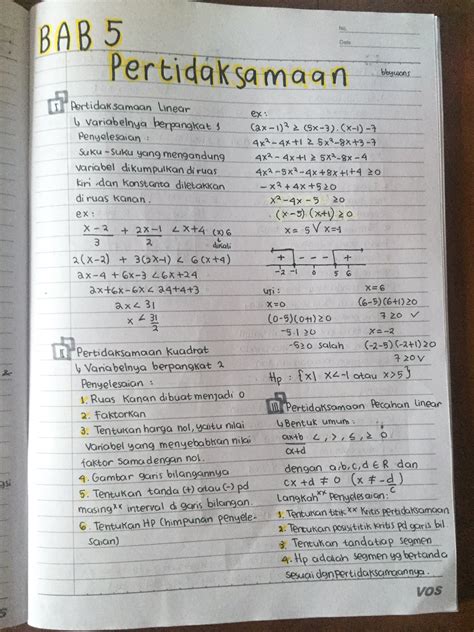 No.
Date
BAB 5
Pertidaksamaan
bbyuons
I Pertidaksamaan Linear
↳ Variabelnya berpangkat 1
Penyelesaian :
Suku-Suku yang mengandung
variabel dikumpulkan diruas
kiri dan konstanta diletakkan
diruas kanan.
ex :
x-2/3 + 2x-1/2 < x+4 (x) 6
↓
dikali
2(x-2) + 3(2x-1) < 6(x+4)
2x-4 + 6x-3 < 6x+24
2x+6x-6x < 24+4+3
2x < 31
x < 31/2
II Pertidaksamaan Kuadrat
↳ Variabelnya berpangkat 2
Penyelesaian :
1. Ruas Kanan dibuat menjadi 0
2. Faktorkan
3. Tentukan harga nol, yaitu nilai
variabel yang menyebabkan nilai
faktor sama dengan nol.
4. Gambar garis bilangannya
5. Tentukan tanda (+) atau (-) pd
masing²x interval di garis bilangan.
6. Tentukan HP (himpunan penyele-
saian)
ex :
(2x-1)² ≥ (5x-3).(x-1)-7
4x²-4x+1 ≥ 5x²-8x+3-7
4x²-4x+1 ≥ 5x²-8x-4
4x²-5x²-4x+8x+1+4 ≥0
-x²+4x+5≥0
x²-4x-5 ≥0
(x-5)(x+1) ≥0
x= 5 V x=-1
+ - - - +
-2 -1 0 5 6
uji :
x=0
(0-5)(0+1)≥0
-5.1 ≥0
-5≥0 salah
x=6
(6-5)(6+1)≥0
7 ≥0 √
x=-2
(-2-5)(-2+1)≥0
7≥0 √
Hp : {x| x<-1 atau x>5}
III Pertidaksamaan Pecahan Linear
↳ Bentuk umum :
ax+b/cx+d <, >, ≤, ≥ 0
dengan a,b,c,d ∈ R dan
cx+d ≠ 0 (x ≠ -d/c)
Langkah²x Penyelesaian :
1. Tentukan titik²x kritis pertidaksamaan
2. Tentukan posisi titik kritis pd garis bil
3. Tentukan tanda tiap segmen
4. Hp adalah segmen yg bertanda
sesuai dgn pertidaksamaannya.
VOS